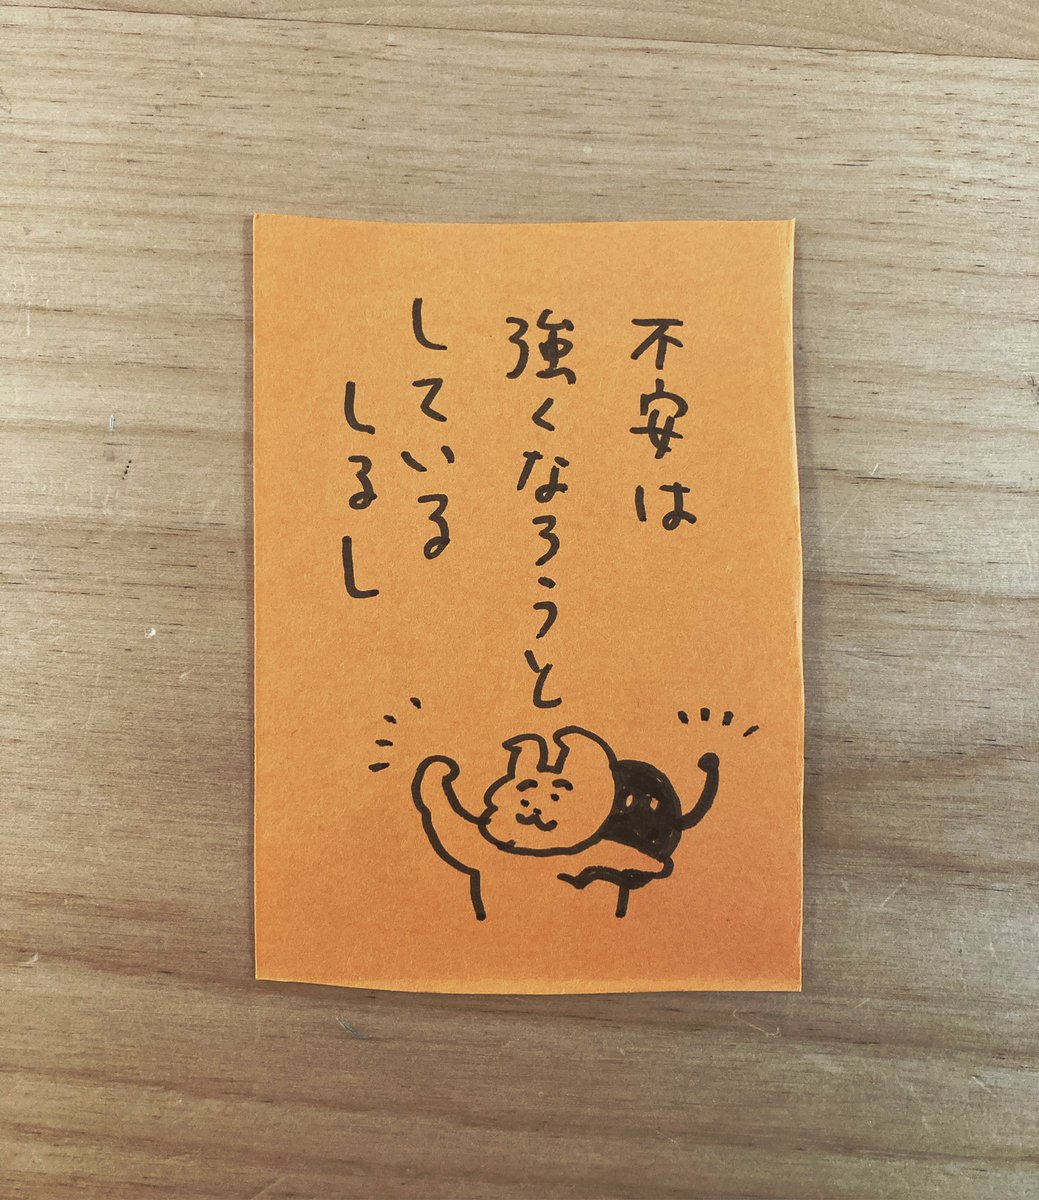 不安は
強くなろうと
している
しるし